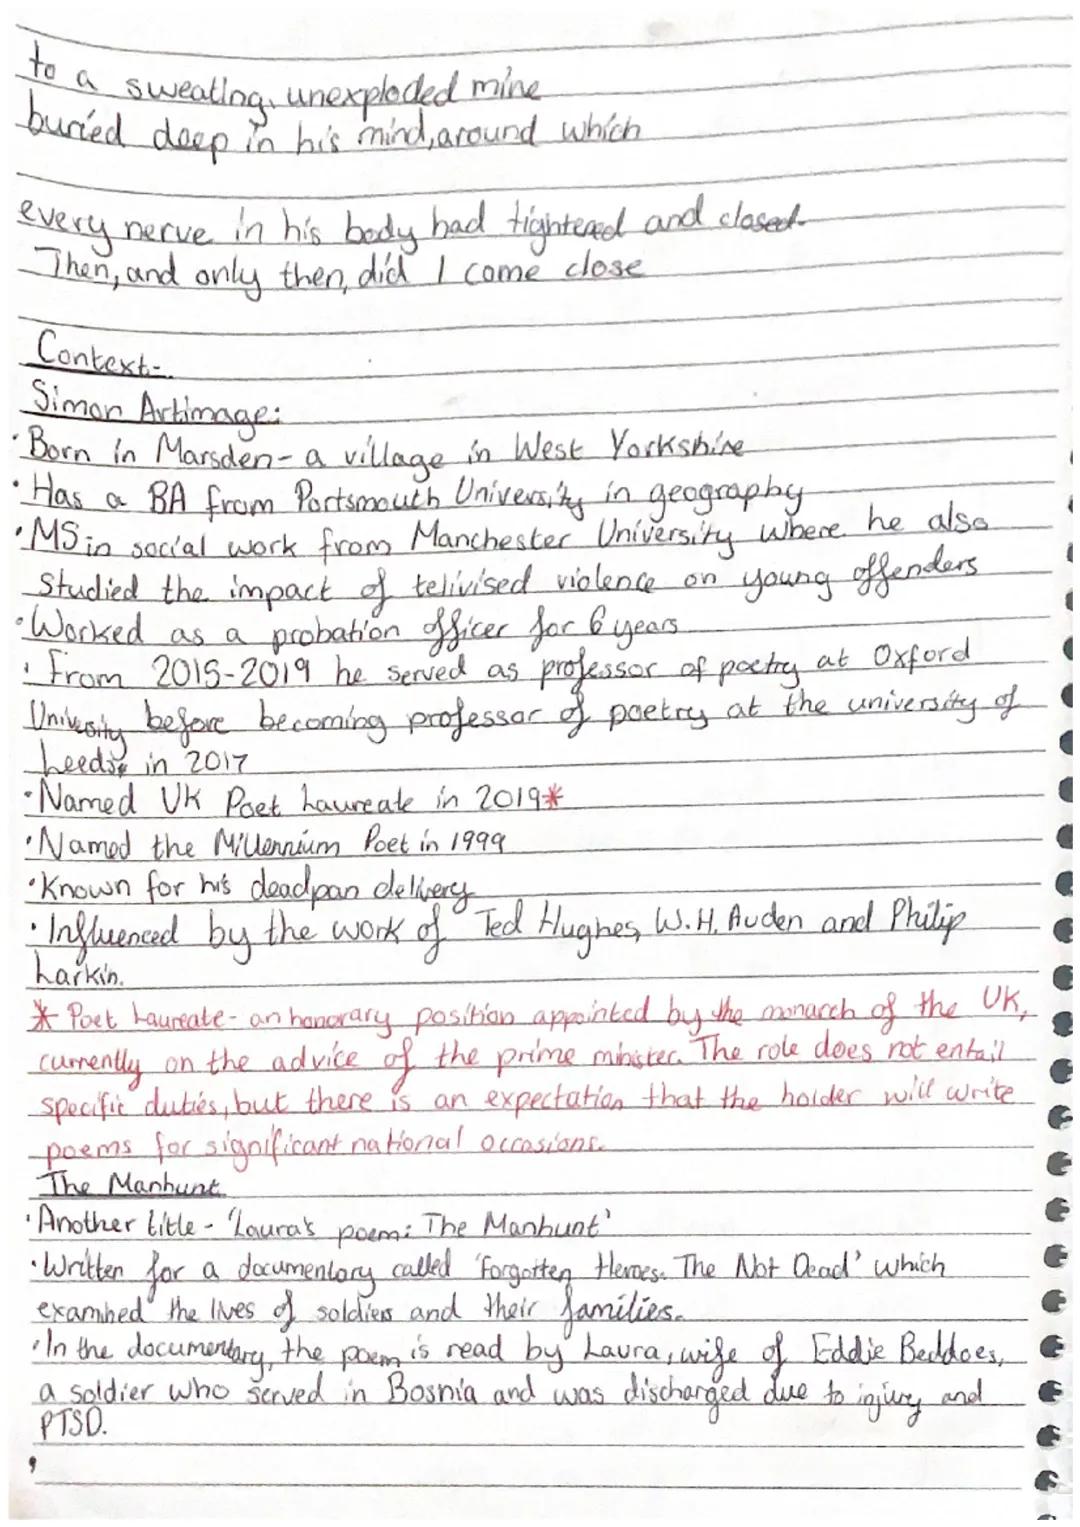 to a sweating, unexploded mine
buried deep in his mind, around which
every nerve in his body had tightened and closed.
Then, and only then, did I come close
Context-
Simon Artimage:
· Born in Marsden - a village in West Yorkshire
· Has a BA from Portsmouth University in geography
· MS in social work from Manchester University where he also
studied the impact of telivised violence on young offenders
· Worked as a probation officer for 6 years
· From 2015-2019 he served as professor of poetry at Oxford
University before becoming professor of poetry at the university of
Leeds in 2017
· Named UK Poet Laureate in 2019*
· Named the Millennium Poet in 1999
· Known for his deadpan delivery
· Influenced by the work of Ted Hughes, W.H. Auden and Philip
Larkin.
* Poet Laureate - an honorary position appointed by the monarch of the UK,
currently on the advice of the prime minister. The role does not entail
specific duties, but there is an expectation that the holder will write
poems for significant national occasions.
The Manhunt
· Another title - 'Laura's poem: The Manhunt'
· Written for a documentary called 'Forgotten Heroes: The Not Dead' which
examined the lives of soldiers and their families.
· In the documentary, the poem is read by Laura, wife of Eddie Beddoes,
a soldier who served in Bosnia and was discharged due to injury and
PTSD.